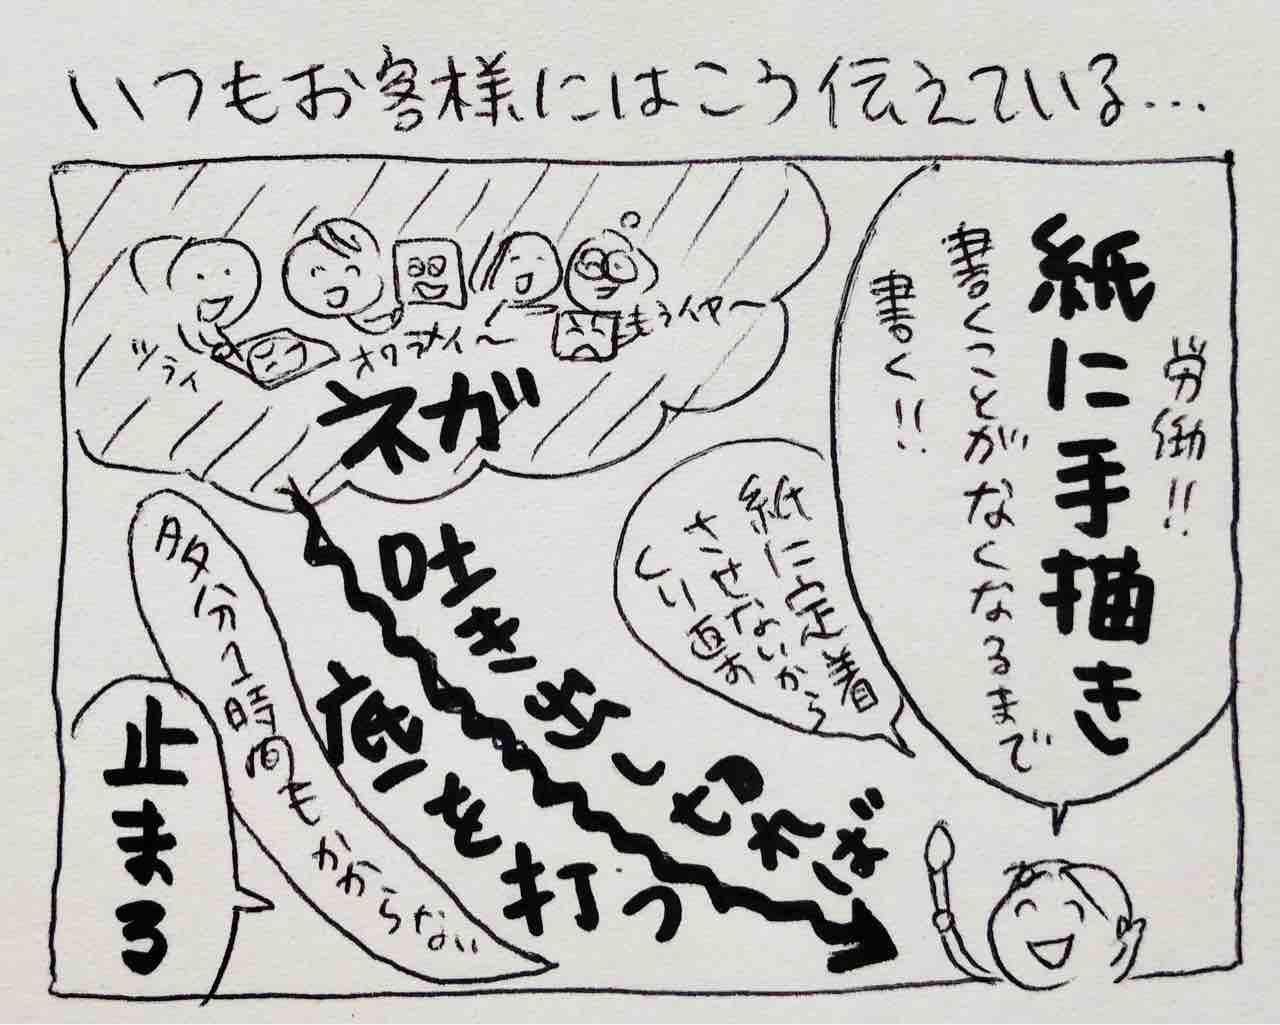 いつもお客様にはこう伝えている…
労働!!
紙に手描き
書くことがなくなるまで
書く!!
紙に定着
させないから
くり返す
ツライ
オワラナイ〜
もうイヤ〜
ネガ
吐き出し切れば
底を打つ
多分1時間もかからない
止まる